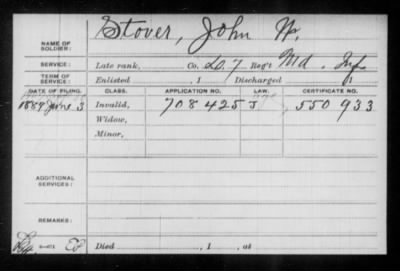 NAME OF SOLDIER: Stover, John W.
SERVICE: Late rank, Co. D. 7 Reg't Md. Inf.
TERM OF SERVICE: Enlisted , 1 Discharged , 1
DATE OF FILING. CLASS. APPLICATION NO. LAW. CERTIFICATE NO.
1889 June 3 Invalid, 708425 J 550 933
Widow,
Minor,
ADDITIONAL SERVICES:
REMARKS:
3-471
Died , 1 , at